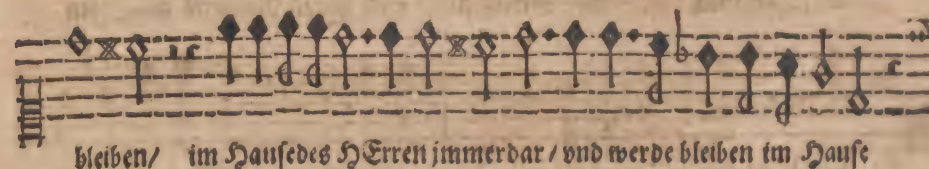 bleiben/ im Hause des HErren jmmerdar / vnd werde bleiben im Hause